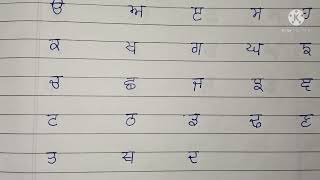 ੳ ਅ ੲ ਸ ਹ
ਕ ਖ ਗ ਘ ਙ
ਚ ਛ ਜ ਝ ਞ
ਟ ਠ ਡ ਢ ਣ
ਤ ਥ ਦ